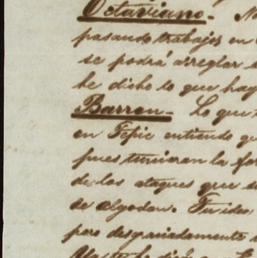 Octaviano. No
pasando trabajos en
se podrá arreglar
he dicho lo que hay
Barron. Lo que
en Tepic entiendo q
pues tuvieron la for
de los ataques que
de algodon. Tu idea
pero desgraciadamente